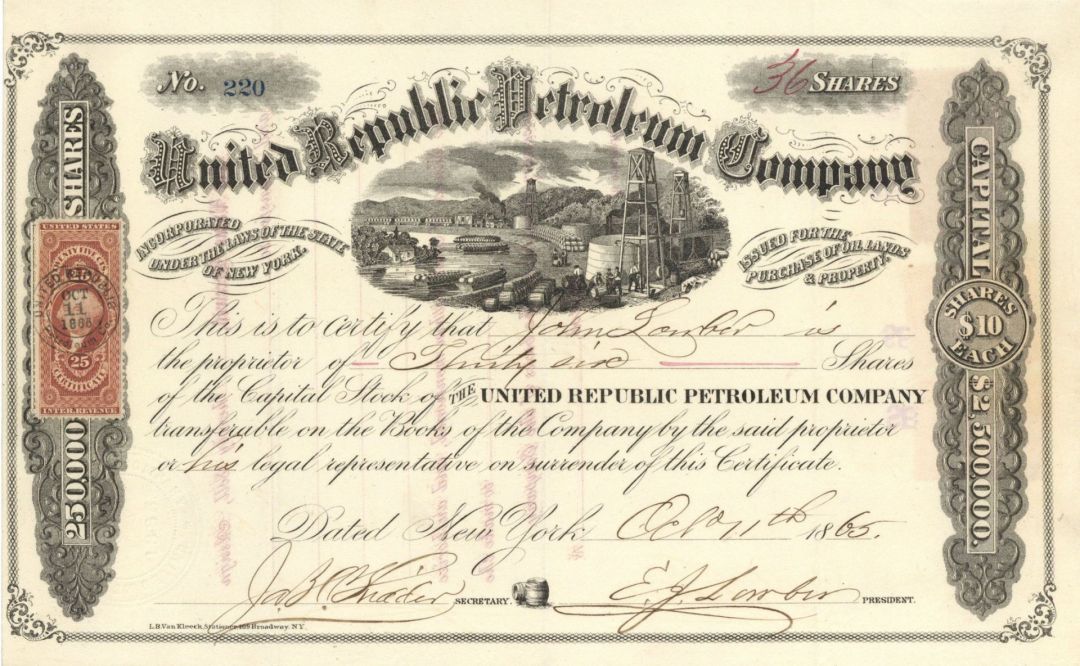 No. 220
36 SHARES
United Republic Petroleum Company
INCORPORATED
UNDER THE LAWS OF THE STATE
OF NEW YORK.
ISSUED FOR THE
PURCHASE OF OIL LANDS
& PROPERTY.
250000 SHARES
UNITED STATES
OCT
11
1865
25
CERTIFICATE
INTER. REVENUE
CAPITAL
SHARES
$10
EACH
$2,500000.
This is to certify that John Lowber is
the proprietor of Thirty six Shares
of the Capital Stock of THE UNITED REPUBLIC PETROLEUM COMPANY
transferable on the Books of the Company by the said proprietor
or his legal representative on surrender of this Certificate.
Dated New York Oct 11th 1865.
SECRETARY.
E. J. Lowber PRESIDENT.
L.B. Van Kleeck, Stationer, 169 Broadway. N.Y.